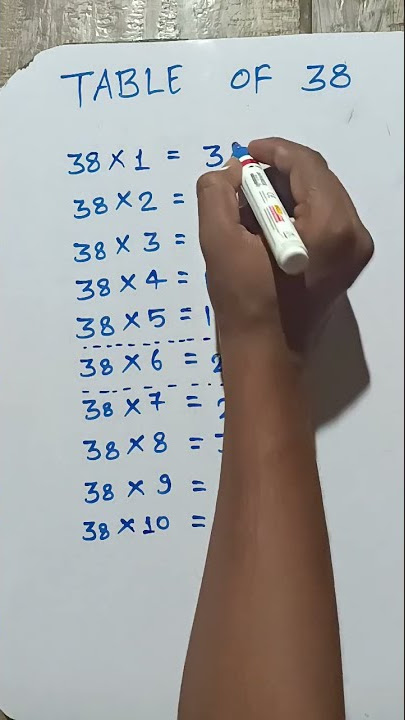 TABLE OF 38
38 × 1 = 3
38 × 2 =
38 × 3 =
38 × 4 = 1
38 × 5 = 1
38 × 6 = 2
38 × 7 = 2
38 × 8 = 3
38 × 9 =
38 × 10 =